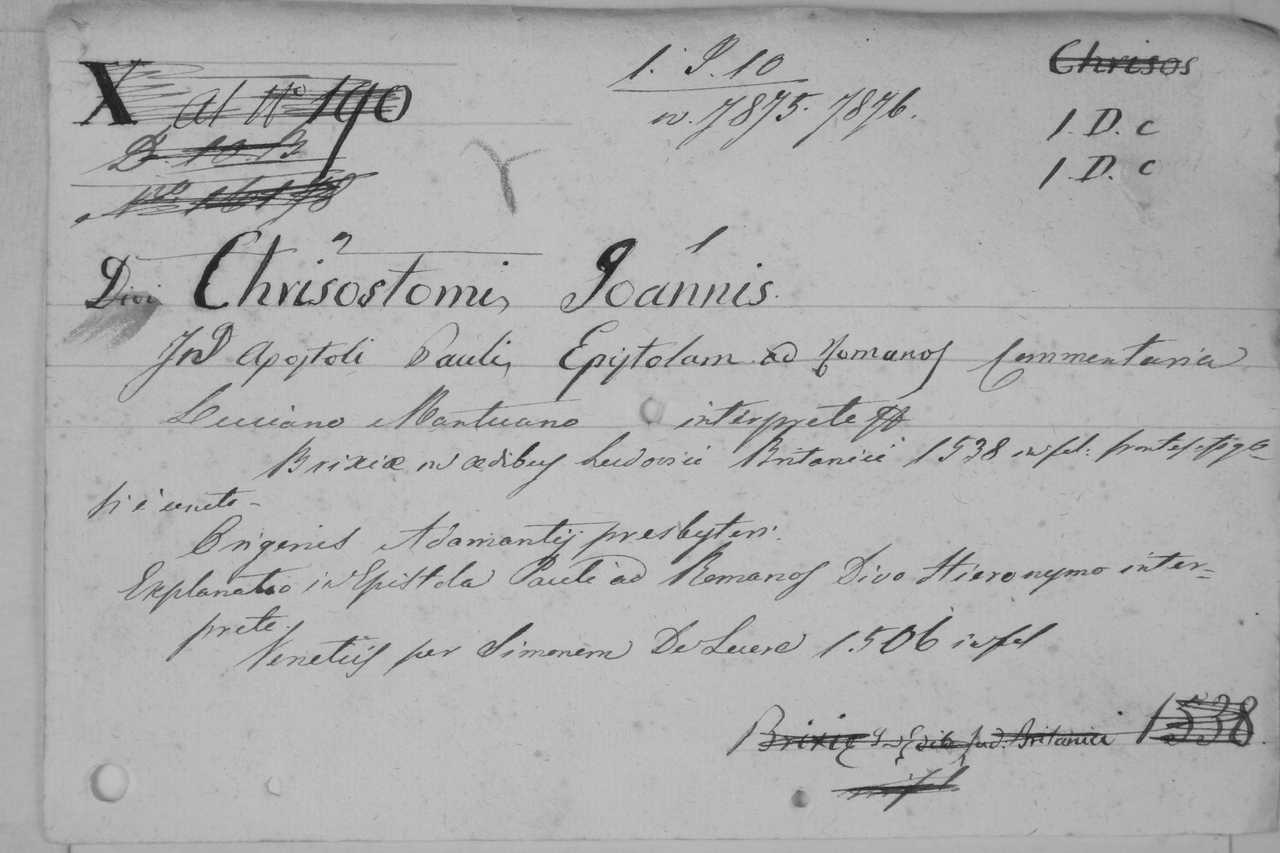 X al No 190
1. P. 10
n. 7875. 7876.
Chrisos
1. D. c
1. D. c
D 10. B
No 161
Divi Chrisostomi, Joánnis.
In D Apostoli Pauli, Epistolam ad Romanos Commentaria
Luciano Mantuano interprete
Brixiæ in ædibus Ludovici Britanici 1538 in fol:
Origenis Adamantij presbyteri.
Explanatio in Epistola Pauli ad Romanos Divo Hieronymo inter=
prete.
Venetiis per Simonem De Luere 1506 in fol
Brixie In Edib Lud. Britanici 1538
in fol